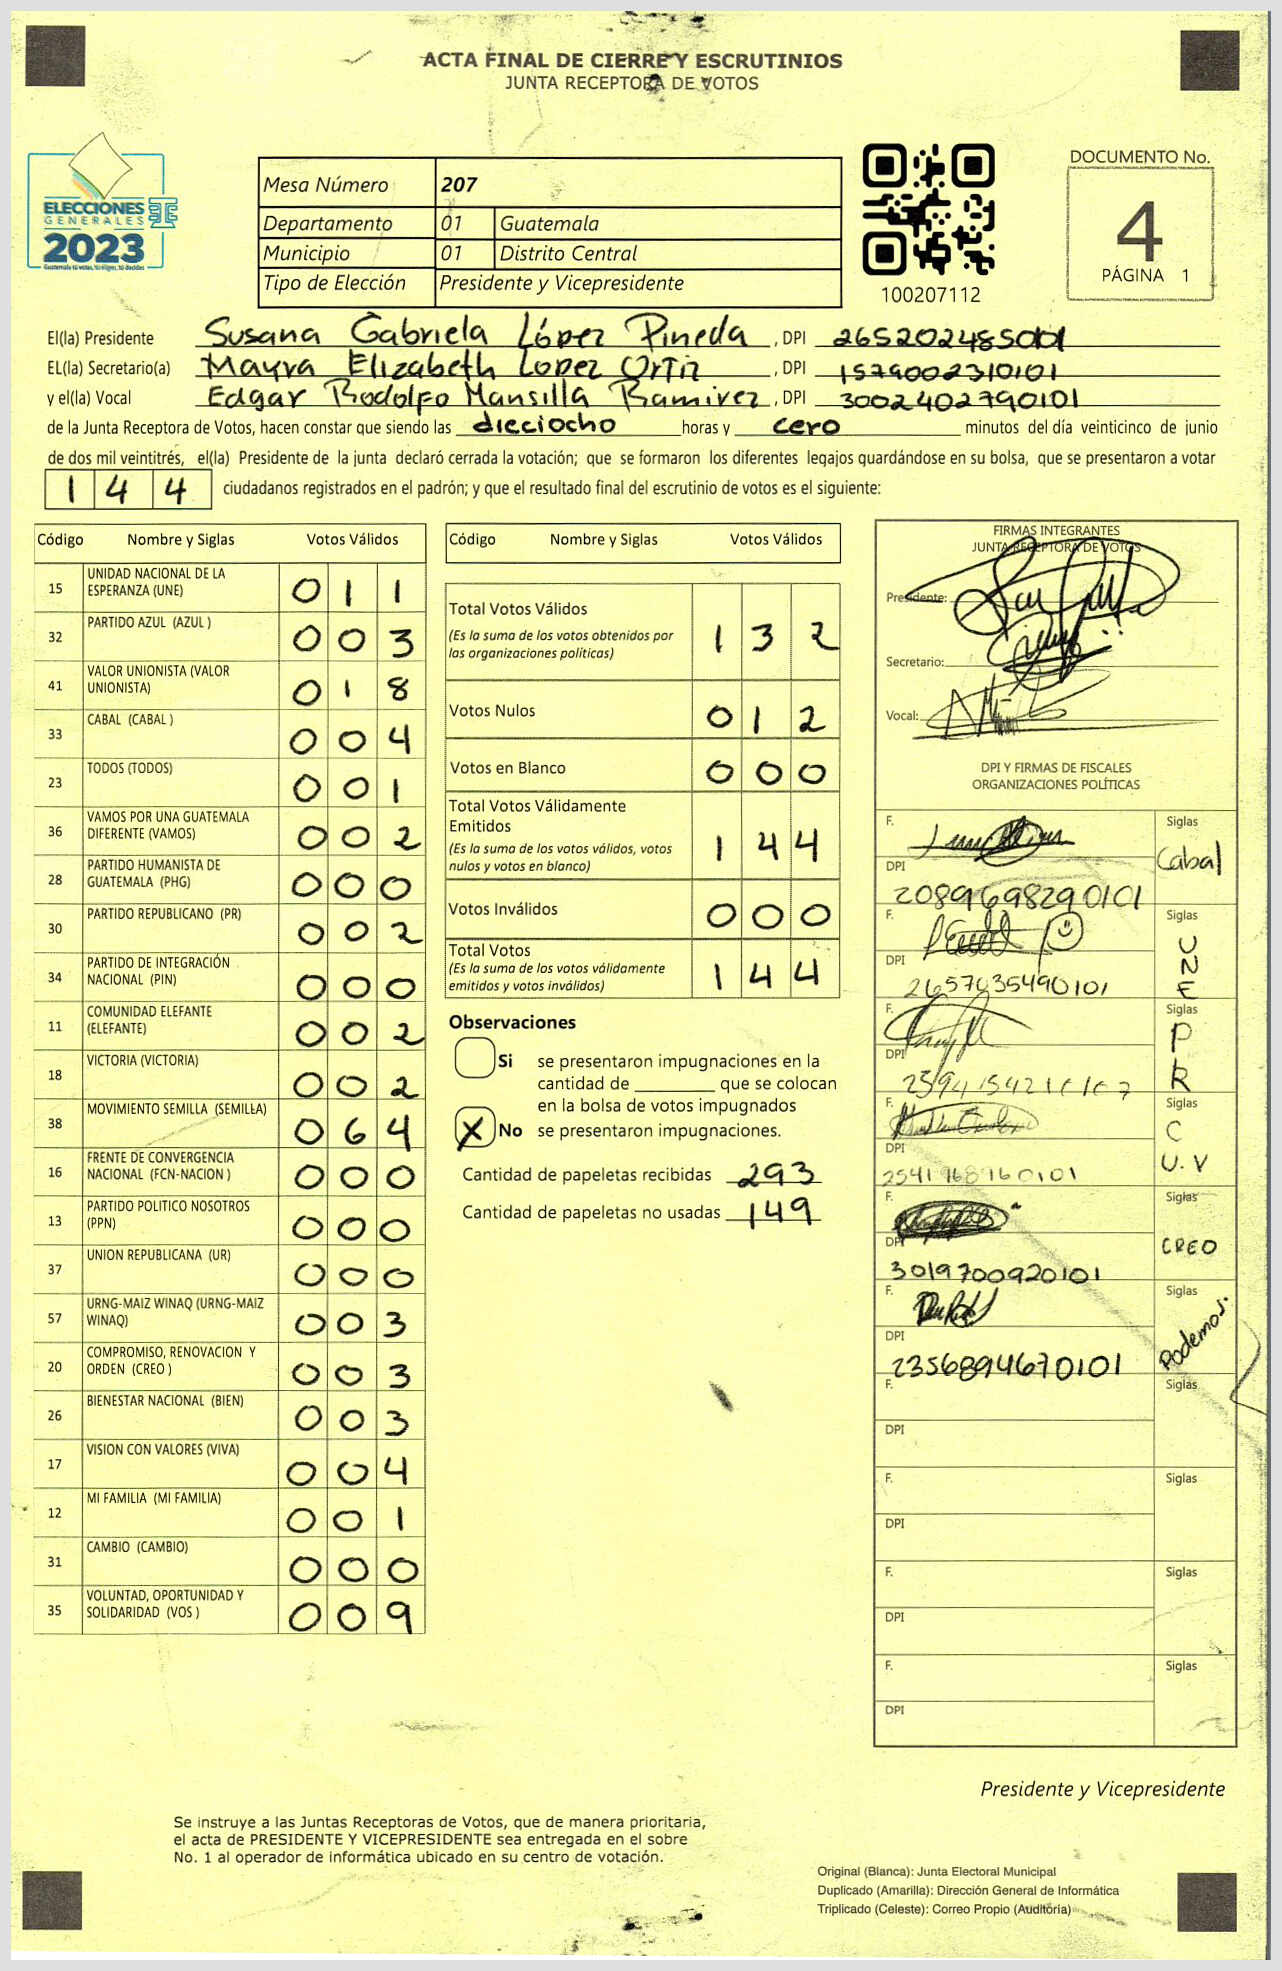 ACTA FINAL DE CIERRE Y ESCRUTINIOS
JUNTA RECEPTORA DE VOTOS
ELECCIONES
GENERALES
2023
Mesa Número 207
Departamento 01 Guatemala
Municipio 01 Distrito Central
Tipo de Elección Presidente y Vicepresidente
100207112
DOCUMENTO No.
4
PÁGINA 1
El(la) Presidente Susana Gabriela López Pineda, DPI
EL(la) Secretario(a) Mayra Elizabeth Lopez Ortiz, DPI 1579002310101
y el(la) Vocal Edgar Rodolfo Mansilla Ramirez, DPI 3002402790101
de la Junta Receptora de Votos, hacen constar que siendo las dieciocho horas y cero minutos del día veinticinco de junio
de dos mil veintitrés, el(la) Presidente de la junta declaró cerrada la votación; que se formaron los diferentes legajos guardándose en su bolsa, que se presentaron a votar
144 ciudadanos registrados en el padrón; y que el resultado final del escrutinio de votos es el siguiente:
Código Nombre y Siglas Votos Válidos
15 UNIDAD NACIONAL DE LA ESPERANZA (UNE) 011
32 PARTIDO AZUL (AZUL ) 003
41 VALOR UNIONISTA (VALOR UNIONISTA) 018
33 CABAL (CABAL ) 004
23 TODOS (TODOS) 001
36 VAMOS POR UNA GUATEMALA DIFERENTE (VAMOS) 002
28 PARTIDO HUMANISTA DE GUATEMALA (PHG) 000
30 PARTIDO REPUBLICANO (PR) 002
34 PARTIDO DE INTEGRACIÓN NACIONAL (PIN) 000
11 COMUNIDAD ELEFANTE (ELEFANTE) 002
18 VICTORIA (VICTORIA) 002
38 MOVIMIENTO SEMILLA (SEMILLA) 064
16 FRENTE DE CONVERGENCIA NACIONAL (FCN-NACION ) 000
13 PARTIDO POLITICO NOSOTROS (PPN) 000
37 UNION REPUBLICANA (UR) 000
57 URNG-MAIZ WINAQ (URNG-MAIZ WINAQ) 003
20 COMPROMISO, RENOVACION Y ORDEN (CREO ) 003
26 BIENESTAR NACIONAL (BIEN) 003
17 VISION CON VALORES (VIVA) 004
12 MI FAMILIA (MI FAMILIA) 001
31 CAMBIO (CAMBIO) 000
35 VOLUNTAD, OPORTUNIDAD Y SOLIDARIDAD (VOS ) 009
Código Nombre y Siglas Votos Válidos
Total Votos Válidos 132
(Es la suma de los votos obtenidos por
las organizaciones políticas)
Votos Nulos 012
Votos en Blanco 000
Total Votos Válidamente
Emitidos 144
(Es la suma de los votos válidos, votos
nulos y votos en blanco)
Votos Inválidos 000
Total Votos 144
(Es la suma de los votos válidamente
emitidos y votos inválidos)
Observaciones
Si se presentaron impugnaciones en la
cantidad de ________ que se colocan
en la bolsa de votos impugnados
X No se presentaron impugnaciones.
Cantidad de papeletas recibidas 293
Cantidad de papeletas no usadas 149
FIRMAS INTEGRANTES
JUNTA RECEPTORA DE VOTOS
Presidente:
Secretario:
Vocal:
DPI Y FIRMAS DE FISCALES
ORGANIZACIONES POLÍTICAS
F. Siglas Cabal
DPI 2089698290101
F. Siglas UNE
DPI 2657635490101
F. Siglas PR
DPI
F. Siglas C
U.V
DPI
F. Siglas CREO
DPI 3019700920101
F. Siglas Podemos.
DPI 2356894670101
F. Siglas
DPI
F. Siglas
DPI
F. Siglas
DPI
F. Siglas
DPI
Presidente y Vicepresidente
Se instruye a las Juntas Receptoras de Votos, que de manera prioritaria,
el acta de PRESIDENTE Y VICEPRESIDENTE sea entregada en el sobre
No. 1 al operador de informática ubicado en su centro de votación.
Original (Blanca): Junta Electoral Municipal
Duplicado (Amarilla): Dirección General de Informática
Triplicado (Celeste): Correo Propio (Auditoría)